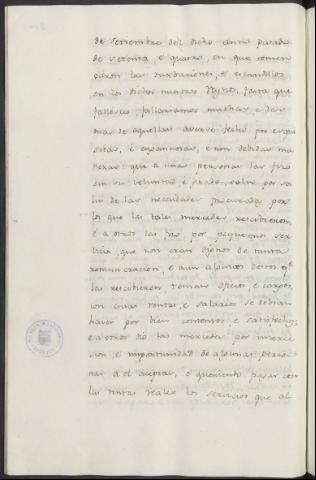 de setiembre del dicho anno pasado
de setenta, e quatro, en que comen
zaron las turbaciones, e escandalos
en los dichos nuestros Reynos, fasta que
fallesció, fallariamos muchas, e las
mas de aquellas averse fecho por exqui
sitas, e exorvitantes, e non debidas ma
neras: que a unas personas las fizo
sin su voluntad, e grado, salvo por sa
lir de las necesidades procuradas por
los que las tales mercedes rescibieron,
e a otros las fizo por pequeños ser
vicios, que non eran dignos de tanta
remuneracion, e aun algunos destos q.e
las rescibieron tenian oficios, e cargos,
con cuias rentas, e salarios se debian
haver por bien contentos, e satisfechos;
e a otros dio las mercedes por intercesi
on, e importunidad de algunas perso
nas a el aceptas, e queriendo pagar con
las rentas reales los servicios que al